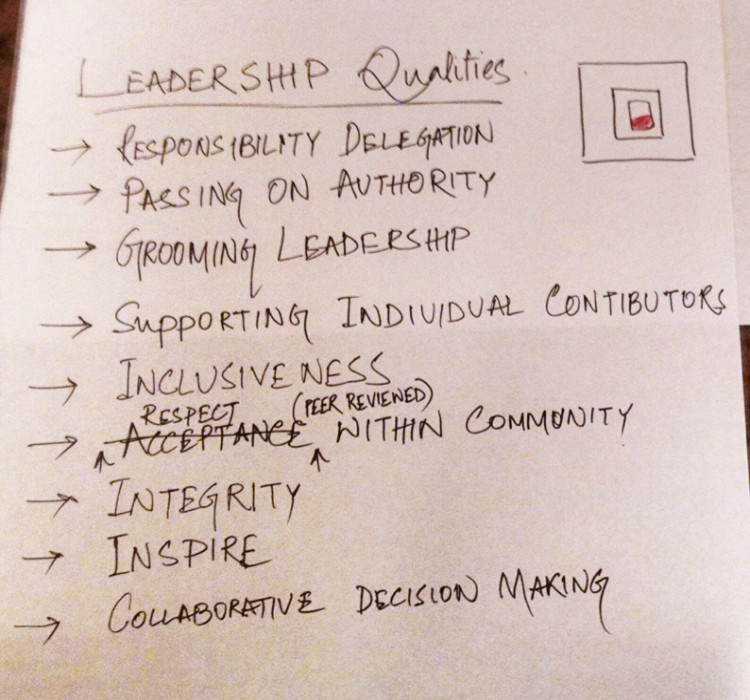 LEADERSHIP Qualities
→ RESPONSIBILITY DELEGATION
→ PASSING ON AUTHORITY
→ GROOMING LEADERSHIP
→ SUPPORTING INDIVIDUAL CONTIBUTORS
→ INCLUSIVENESS
RESPECT (PEER REVIEWED)
→ ACCEPTANCE WITHIN COMMUNITY
→ INTEGRITY
→ INSPIRE
→ COLLABORATIVE DECISION MAKING